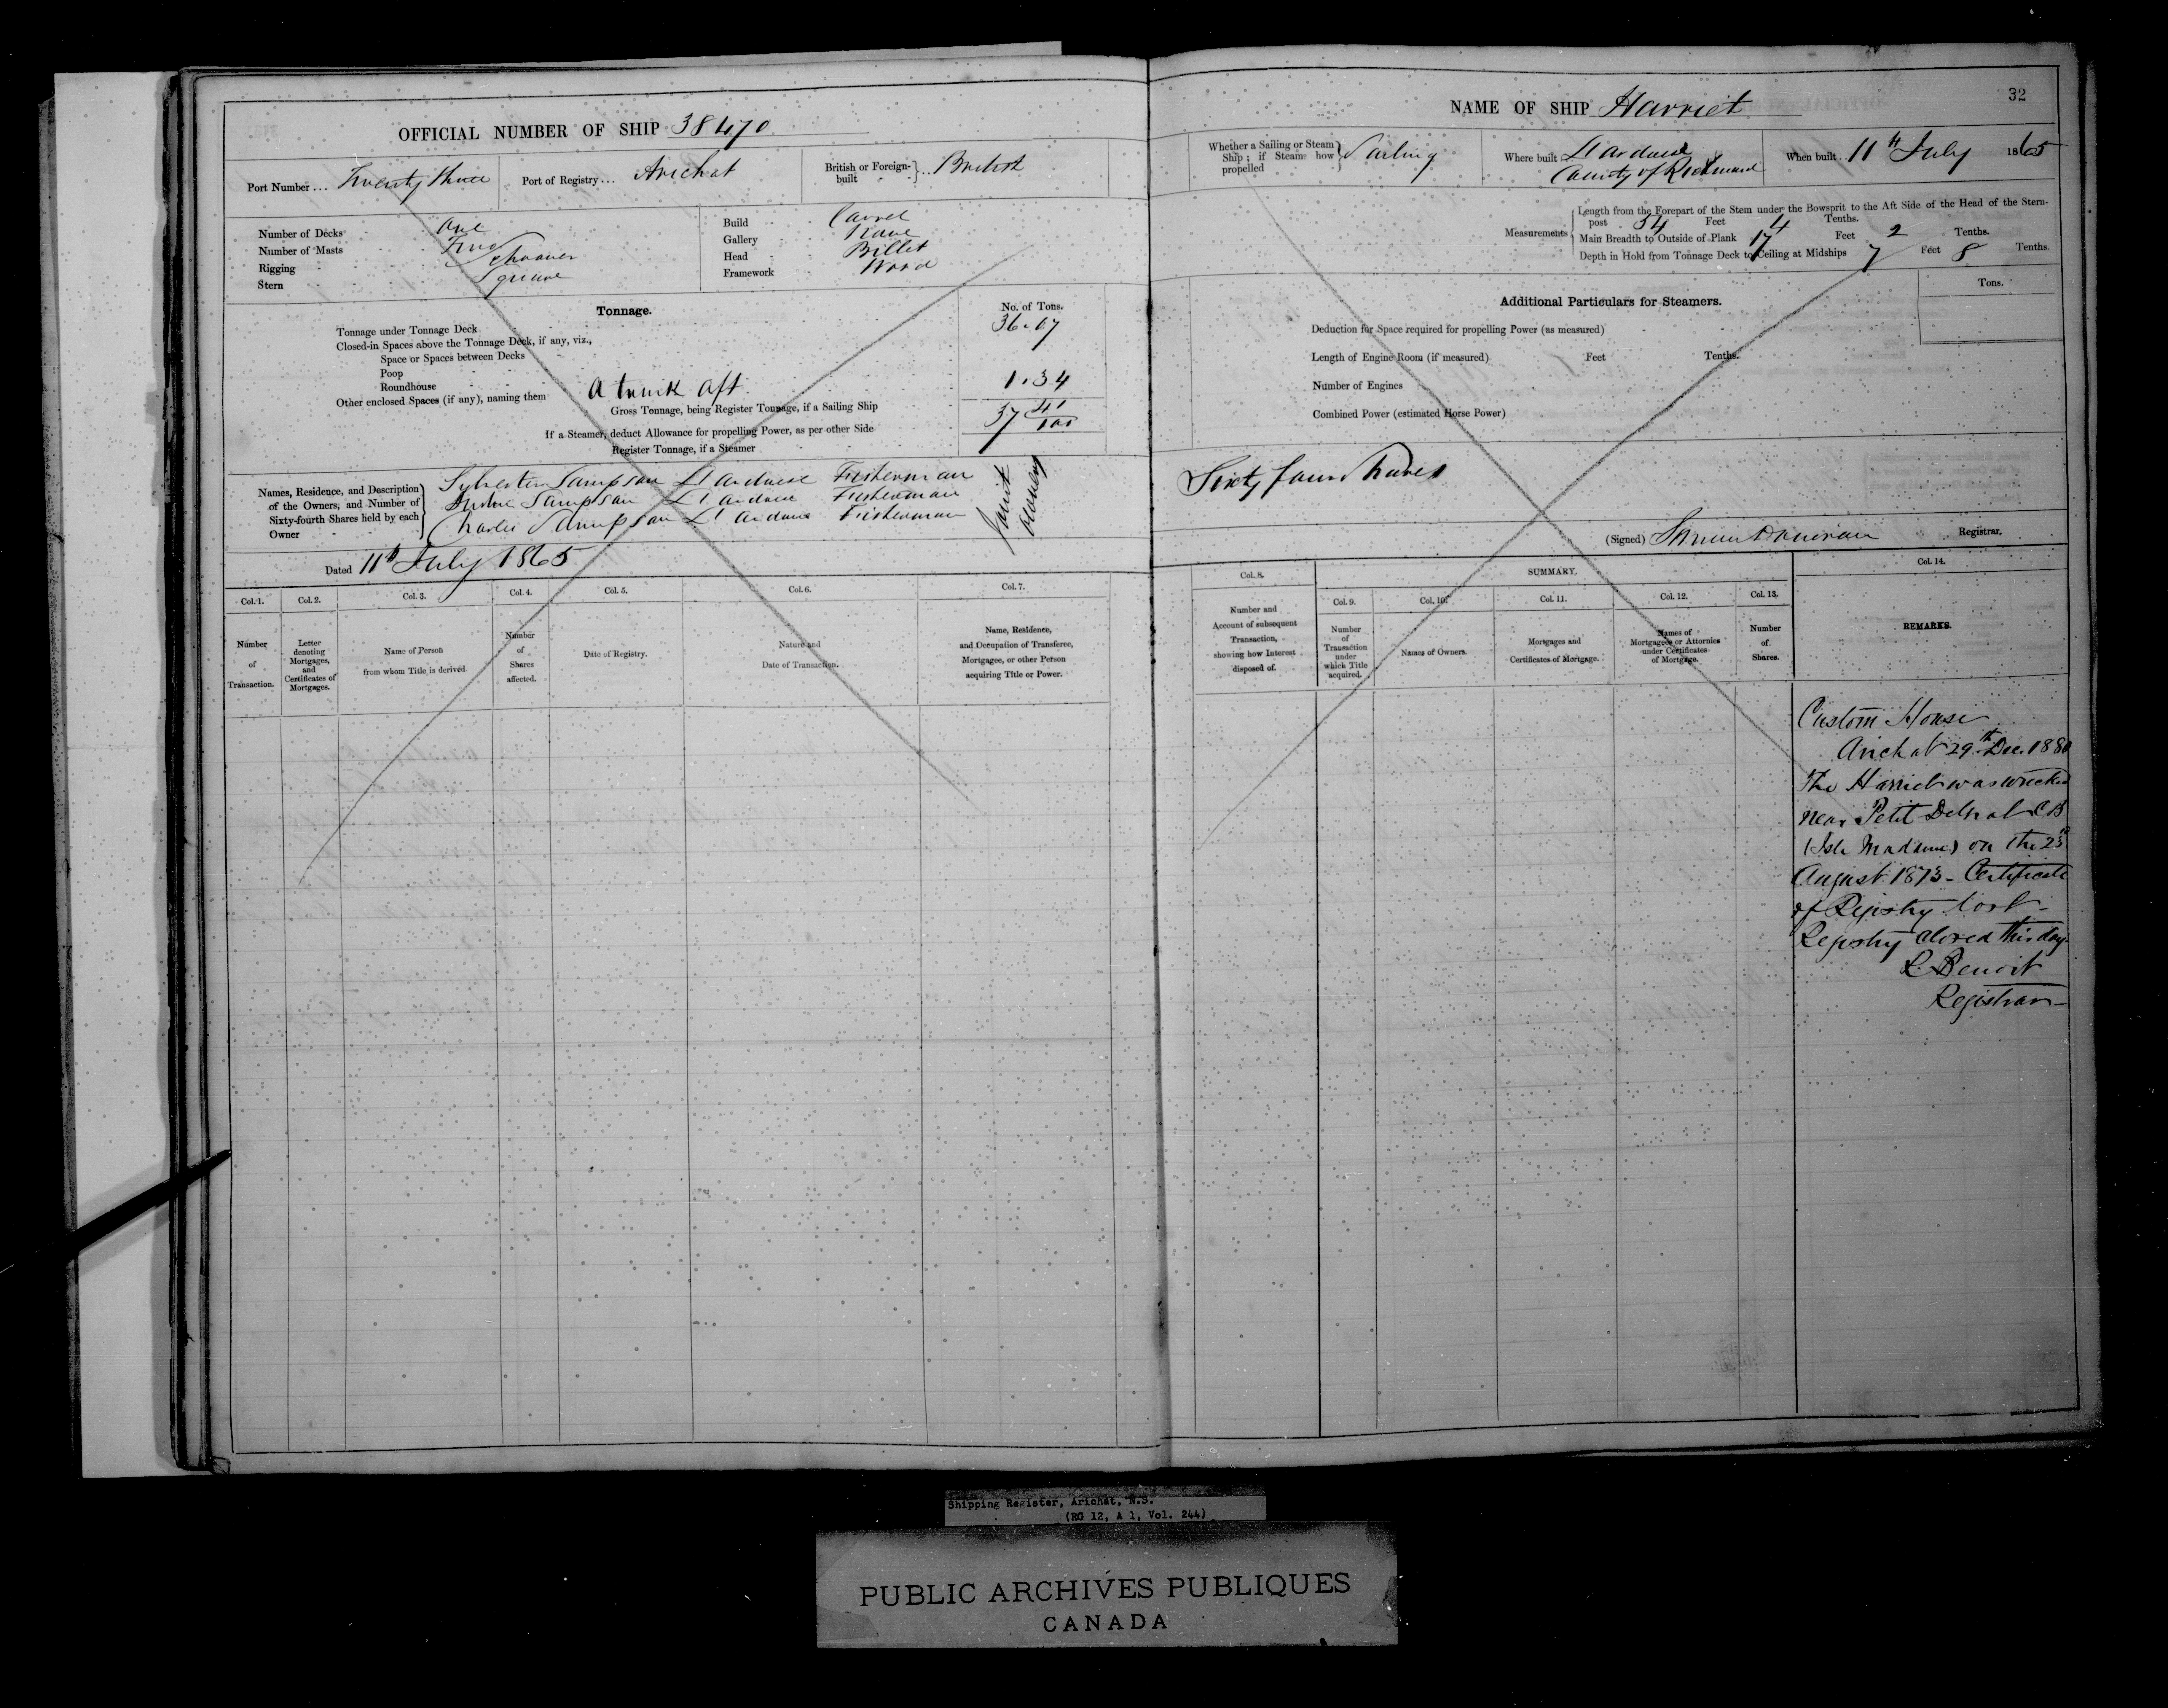 OFFICIAL NUMBER OF SHIP 38470
Port Number ... Twenty three
Port of Registry ... Arichat
British or Foreign-built } .. British
Number of Decks One
Number of Masts Two
Rigging Schooner
Stern Square
Build Carvel
Gallery None
Head Billet
Framework Wood
Tonnage.
No. of Tons.
Tonnage under Tonnage Deck 36.07
Closed-in Spaces above the Tonnage Deck, if any, viz.,
Space or Spaces between Decks
Poop
Roundhouse
Other enclosed Spaces (if any), naming them A trunk aft 1.34
Gross Tonnage, being Register Tonnage, if a Sailing Ship 37 41/100
If a Steamer, deduct Allowance for propelling Power, as per other Side
Register Tonnage, if a Steamer
Names, Residence, and Description of the Owners, and Number of Sixty-fourth Shares held by each Owner
Sylvester Sampson L'Ardoise Fisherman
Sampson L'Ardoise Fisherman
Charles Sampson L'Ardoise Fisherman
Joint Owners
Dated 11th July 1865
Col. 1. Number of Transaction.
Col. 2. Letter denoting Mortgages, and Certificates of Mortgages.
Col. 3. Name of Person from whom Title is derived.
Col. 4. Number of Shares affected.
Col. 5. Date of Registry.
Col. 6. Nature and Date of Transaction.
Col. 7. Name, Residence, and Occupation of Transferee, Mortgagee, or other Person acquiring Title or Power.
32
NAME OF SHIP Harriet
Whether a Sailing or Steam Ship; if Steam how propelled } Sailing
Where built L'Ardoise
County of Richmond
When built .. 11th July 1865
Measurements
Length from the Forepart of the Stem under the Bowsprit to the Aft Side of the Head of the Stern-post 54 Feet 4 Tenths.
Main Breadth to Outside of Plank 17 Feet 2 Tenths.
Depth in Hold from Tonnage Deck to Ceiling at Midships 7 Feet 8 Tenths.
Additional Particulars for Steamers.
Tons.
Deduction for Space required for propelling Power (as measured)
Length of Engine Room (if measured) Feet Tenths.
Number of Engines
Combined Power (estimated Horse Power)
Sixty four Shares
(Signed) Registrar.
Col. 8. Number and Account of subsequent Transaction, showing how Interest disposed of.
SUMMARY.
Col. 9. Number of Transaction under which Title acquired.
Col. 10. Names of Owners.
Col. 11. Mortgages and Certificates of Mortgage.
Col. 12. Names of Mortgagees or Attornies under Certificates of Mortgage.
Col. 13. Number of Shares.
Col. 14. REMARKS.
Custom House
Arichat 29th Dec. 1880
The Harriet was wrecked
near Petit Degrat C B
(Isle Madame) on the 23rd
August 1873 - Certificate
of Registry lost -
Registry closed this day.
R. Benoit
Registrar -
Shipping Register, Arichat, N.S.
(RG 12, A 1, Vol. 244)
PUBLIC ARCHIVES PUBLIQUES
CANADA